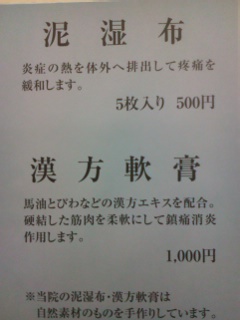 泥湿布
炎症の熱を体外へ排出して疼痛を
緩和します。
5枚入り 500円
漢方軟膏
馬油とびわなどの漢方エキスを配合。
硬結した筋肉を柔軟にして鎮痛消炎
作用します。
1,000円
※当院の泥湿布・漢方軟膏は
自然素材のものを手作りしています。